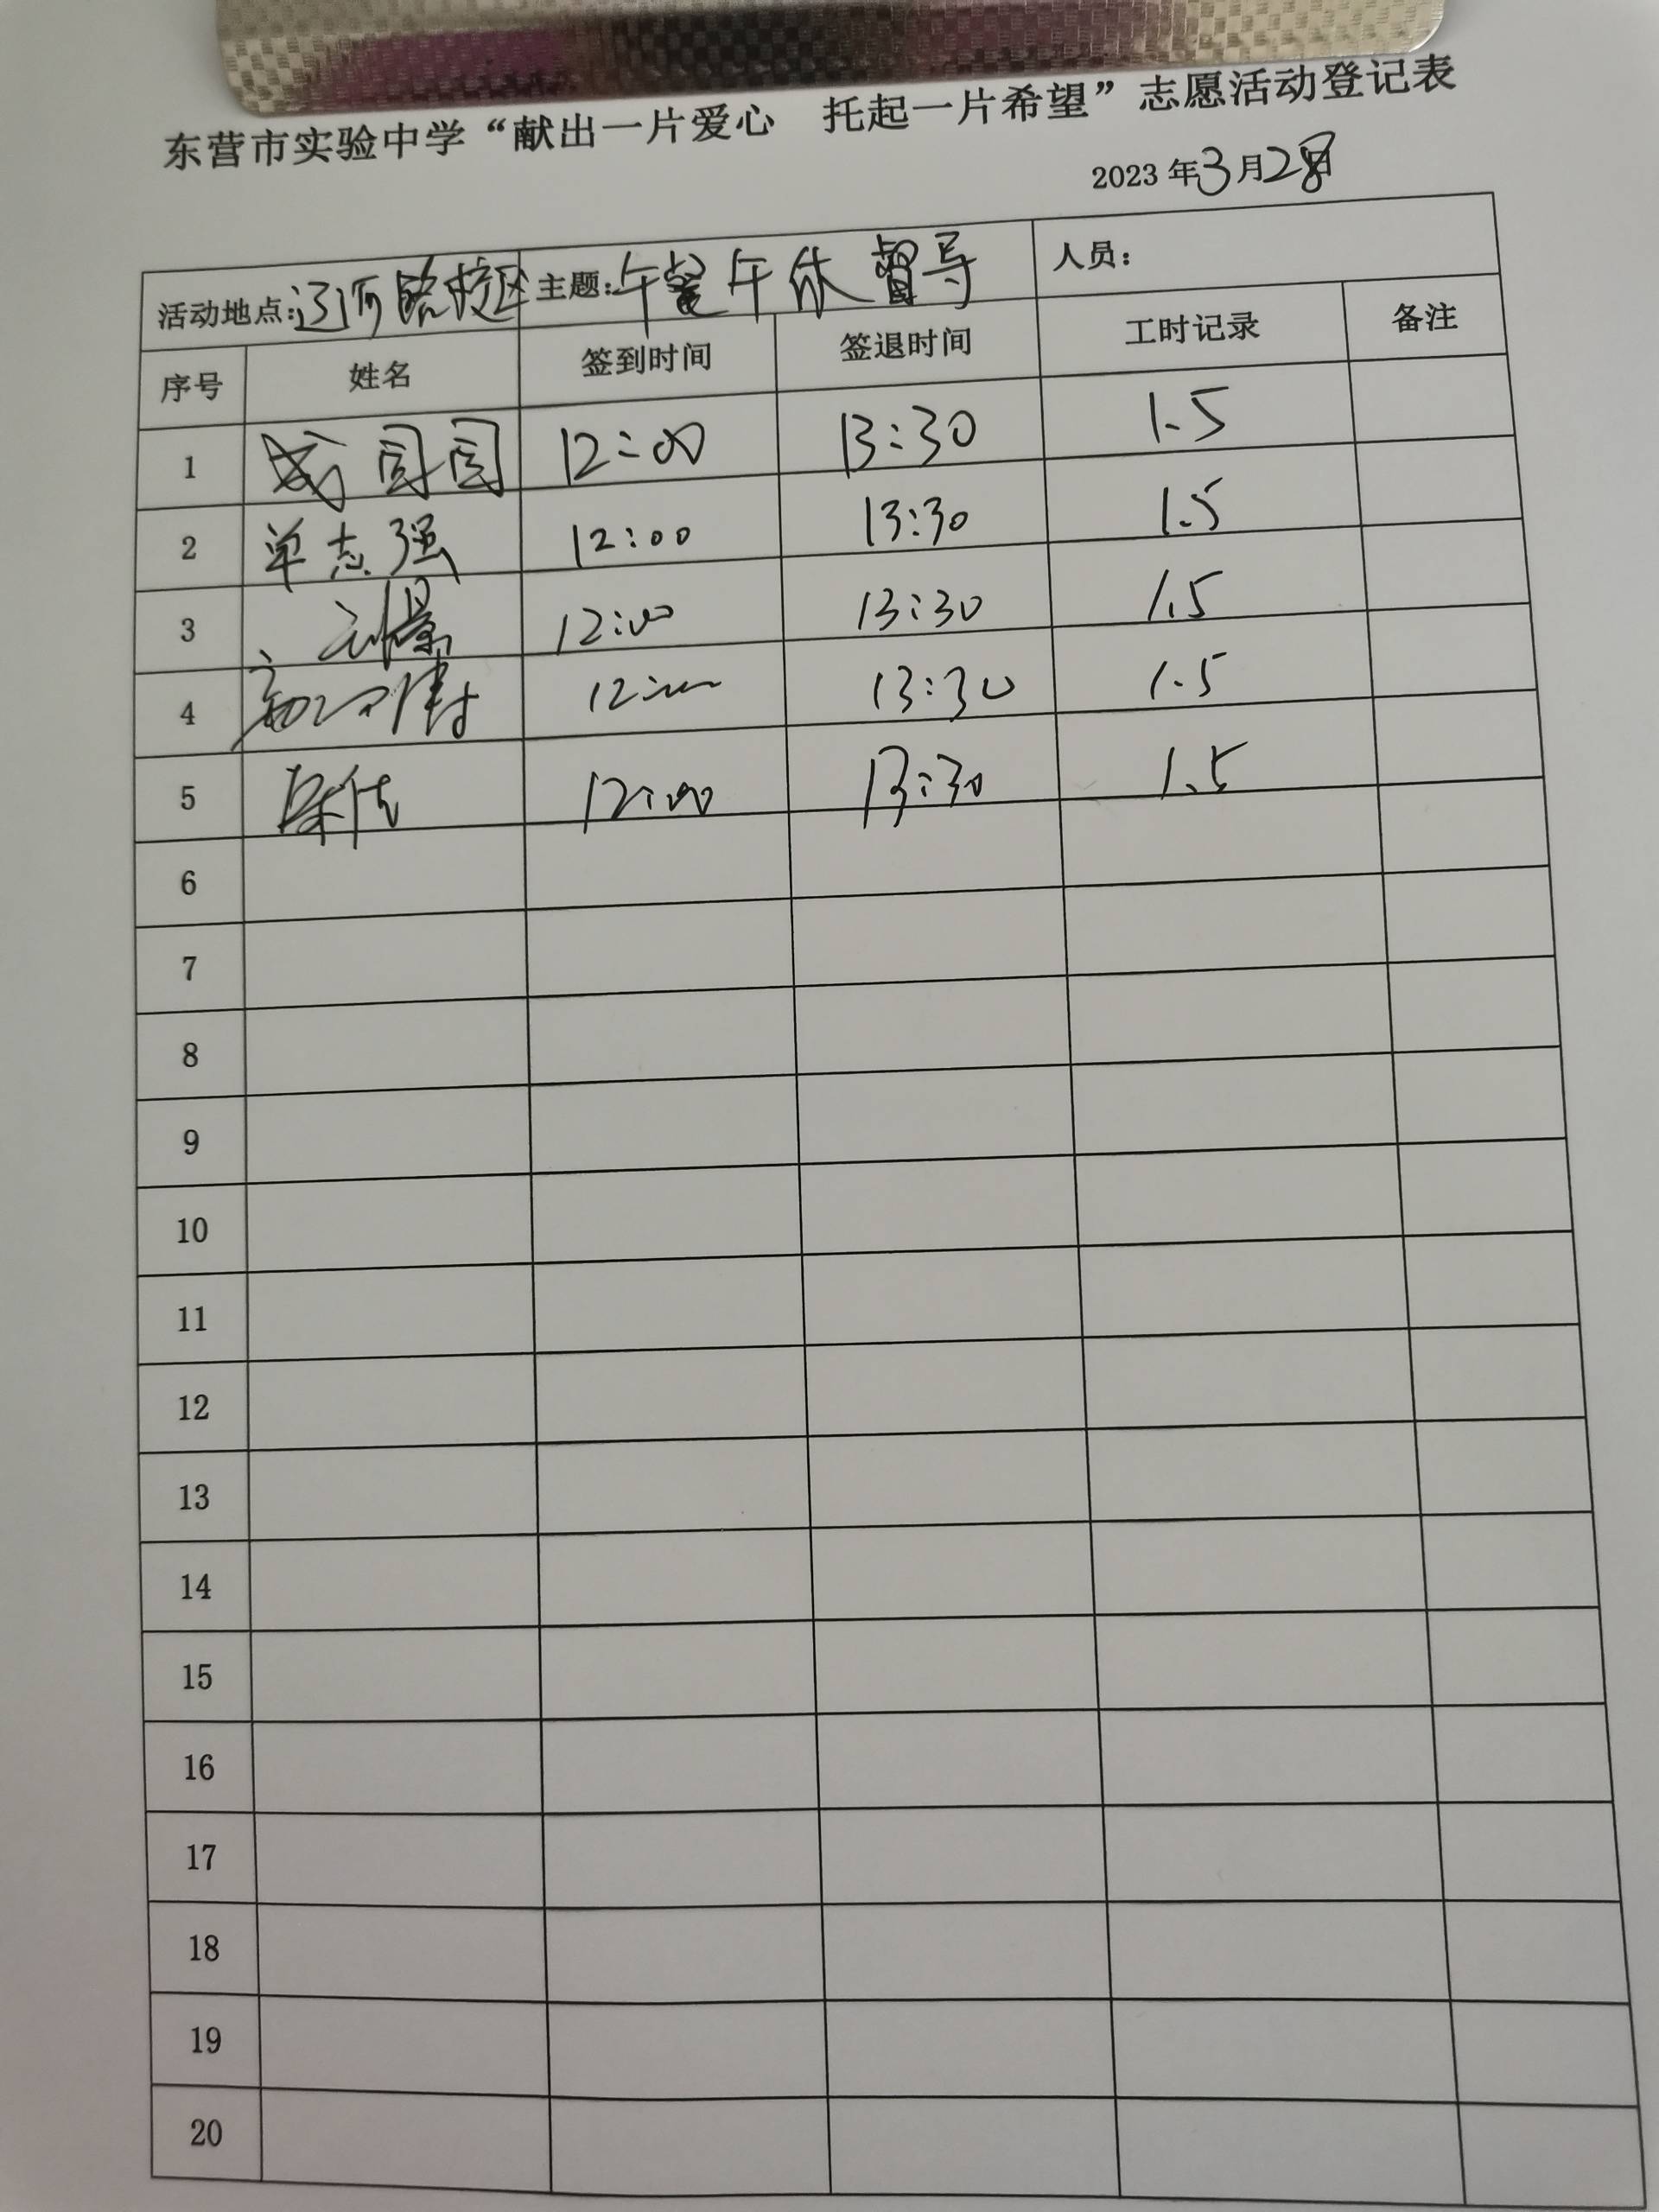 东营市实验中学“献出一片爱心 托起一片希望”志愿活动登记表
2023年3月28日
活动地点:辽河路校区 主题:午餐午休督导 人员:
序号 姓名 签到时间 签退时间 工时记录 备注
1 12:00 13:30 1.5
2 单志强 12:00 13:30 1.5
3 刘景 12:00 13:30 1.5
4 12:00 13:30 1.5
5 12:00 13:30 1.5
6
7
8
9
10
11
12
13
14
15
16
17
18
19
20